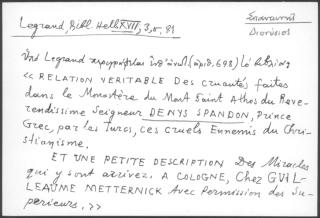 Legrand, Bibl. Hell. XVII, 3, σ. 81
Σπανδωνῆ
Διονύσιος
Ὑπὸ Legrand περιγράφεται (ἀριθ. 698) τὸ
« RELATION VERITABLE Des cruautés faites
dans le Monastère du Mont Saint Athos du Reve-
rendissime Seigneur DENYS SPANDON, Prince
Grec, par les Turcs, ces cruels Ennemis du Chri-
stianisme.
ET UNE PETITE DESCRIPTION Des Miracles
qui y sont arrivez. A COLOGNE, Chez GUIL-
LEAUME METTERNICK Avec Permission des Su-
perieurs. »